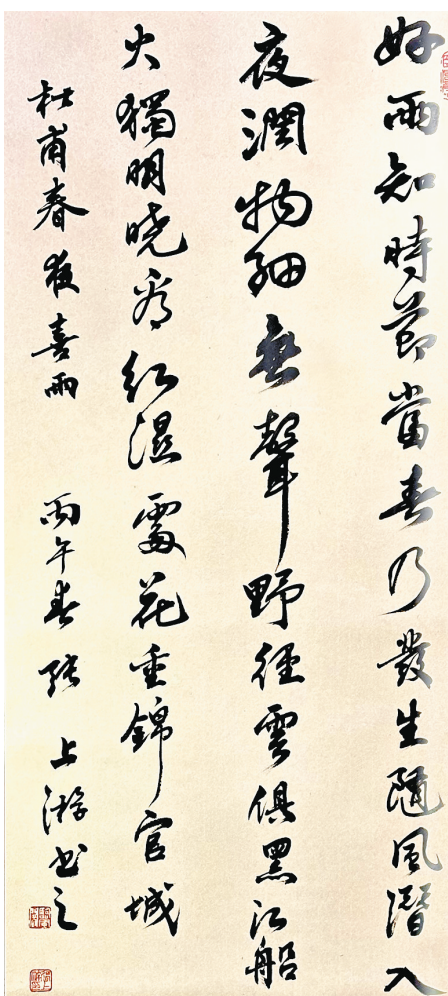 好雨知時節當春乃發生隨風潛入
夜潤物細無聲野徑雲俱黑江船
火獨明曉看紅濕處花重錦官城
杜甫春夜喜雨
丙午春 張上游書之